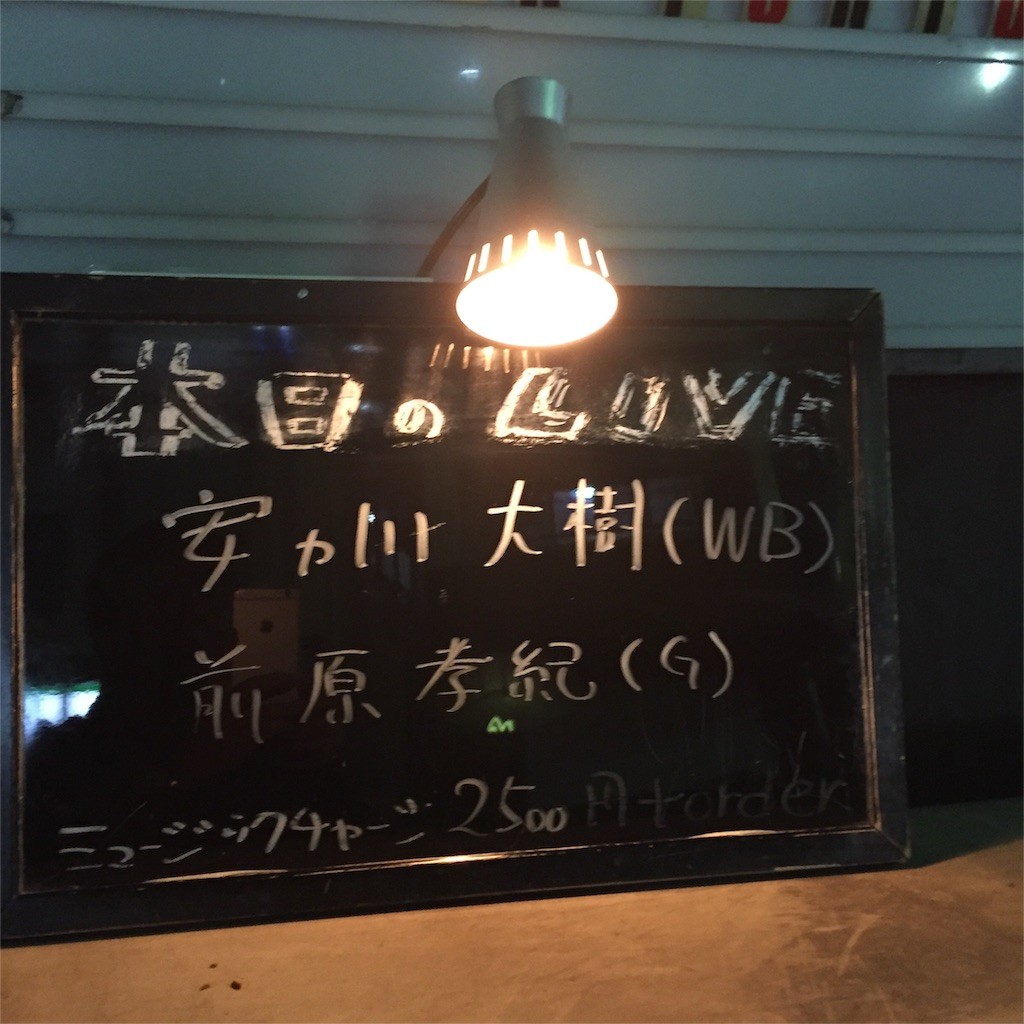 本日のLIVE
安カ川大樹(WB)
前原孝紀(G)
ミュージックチャージ2500円+order